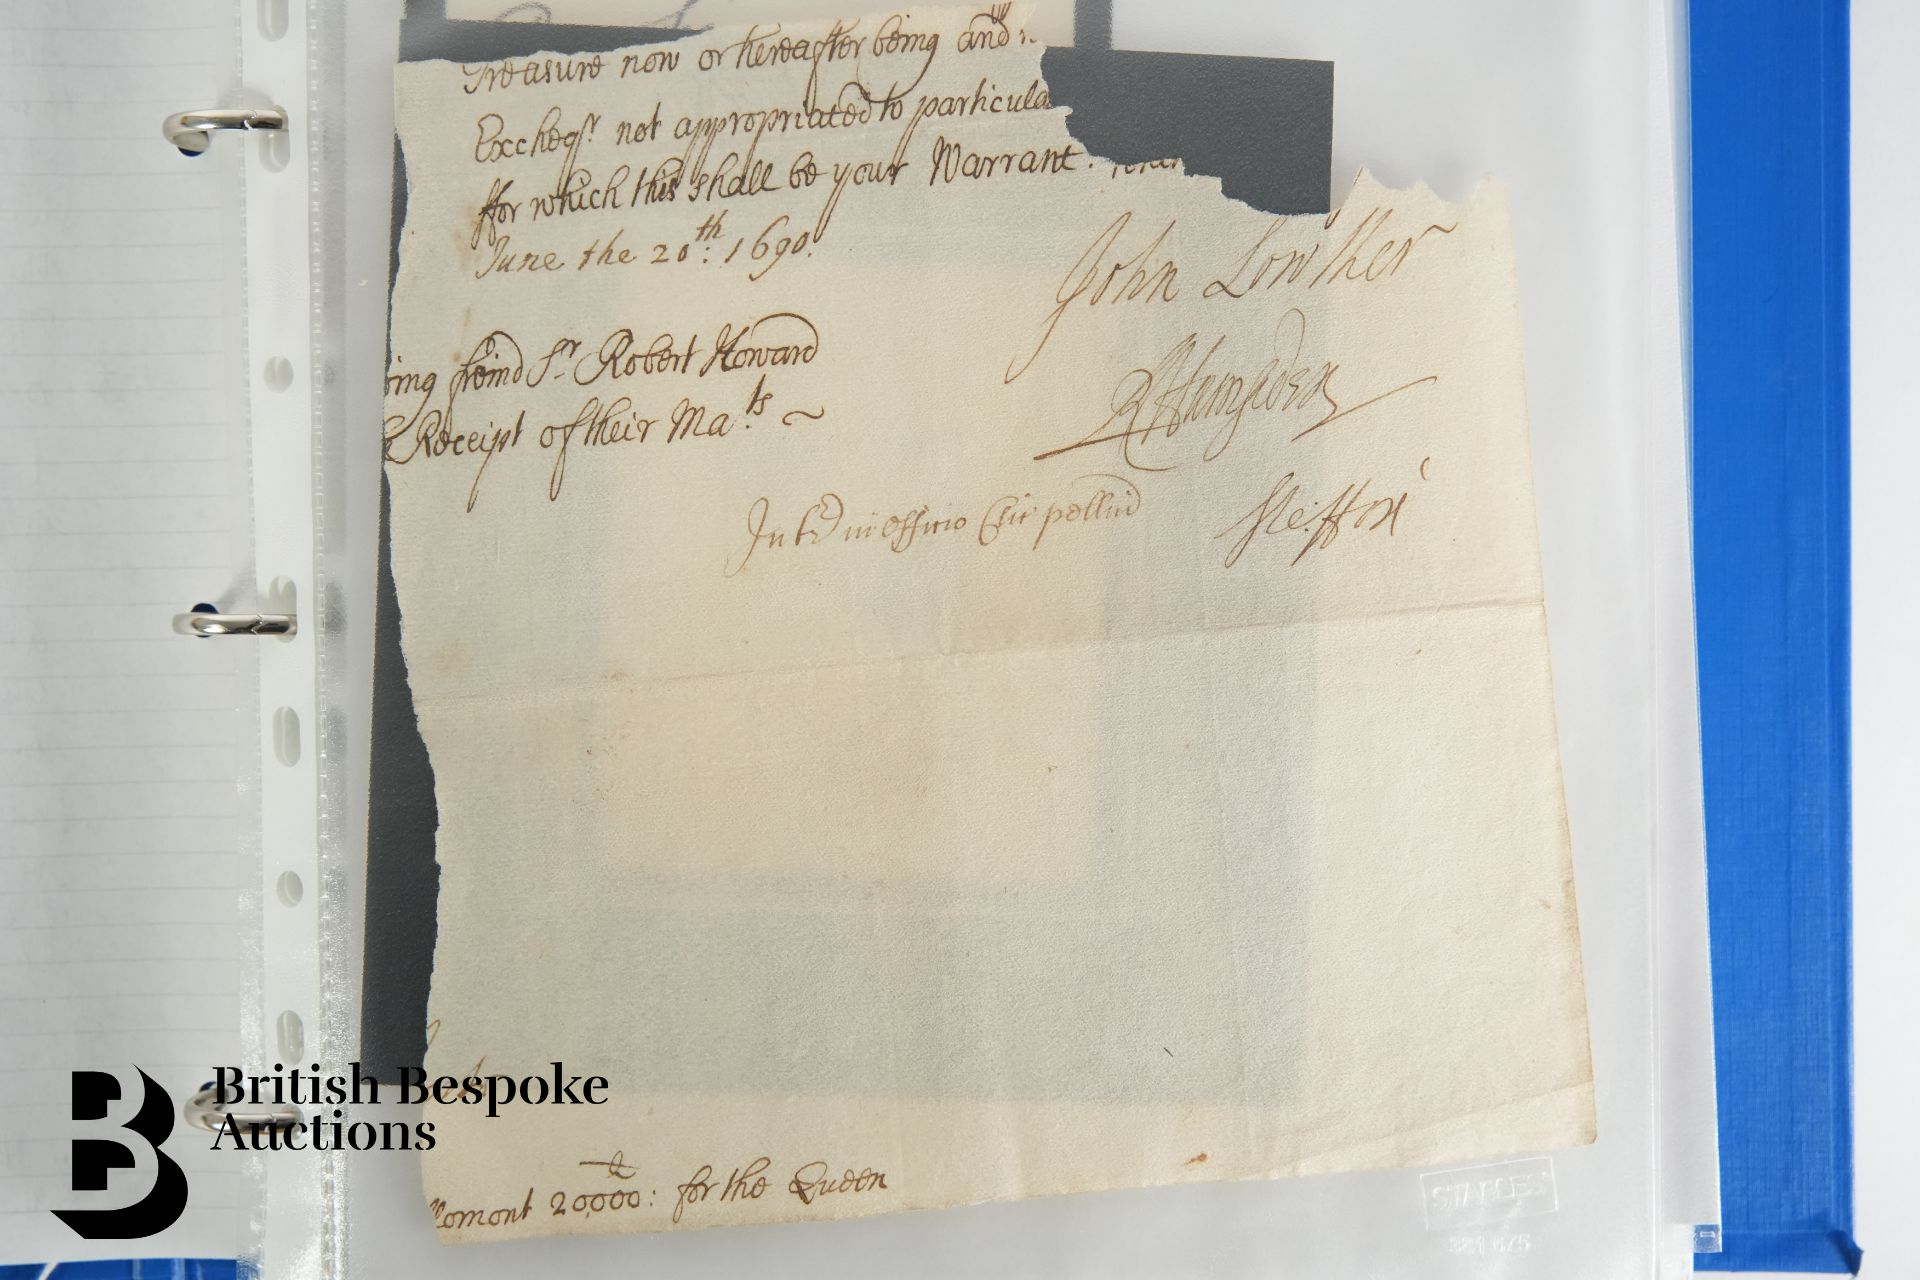 Treasure now or hereafter being and
Excheqr. not appropriated to particula
ffor which this shall be your Warrant.
June the 20th: 1690.
John Lowther
ing freind Sr Robert Howard
RHampden
Receipt of their Ma.ts ~
In officio Cler pelliu
20000: for the Queen
British Bespoke
Auctions
STAPLES